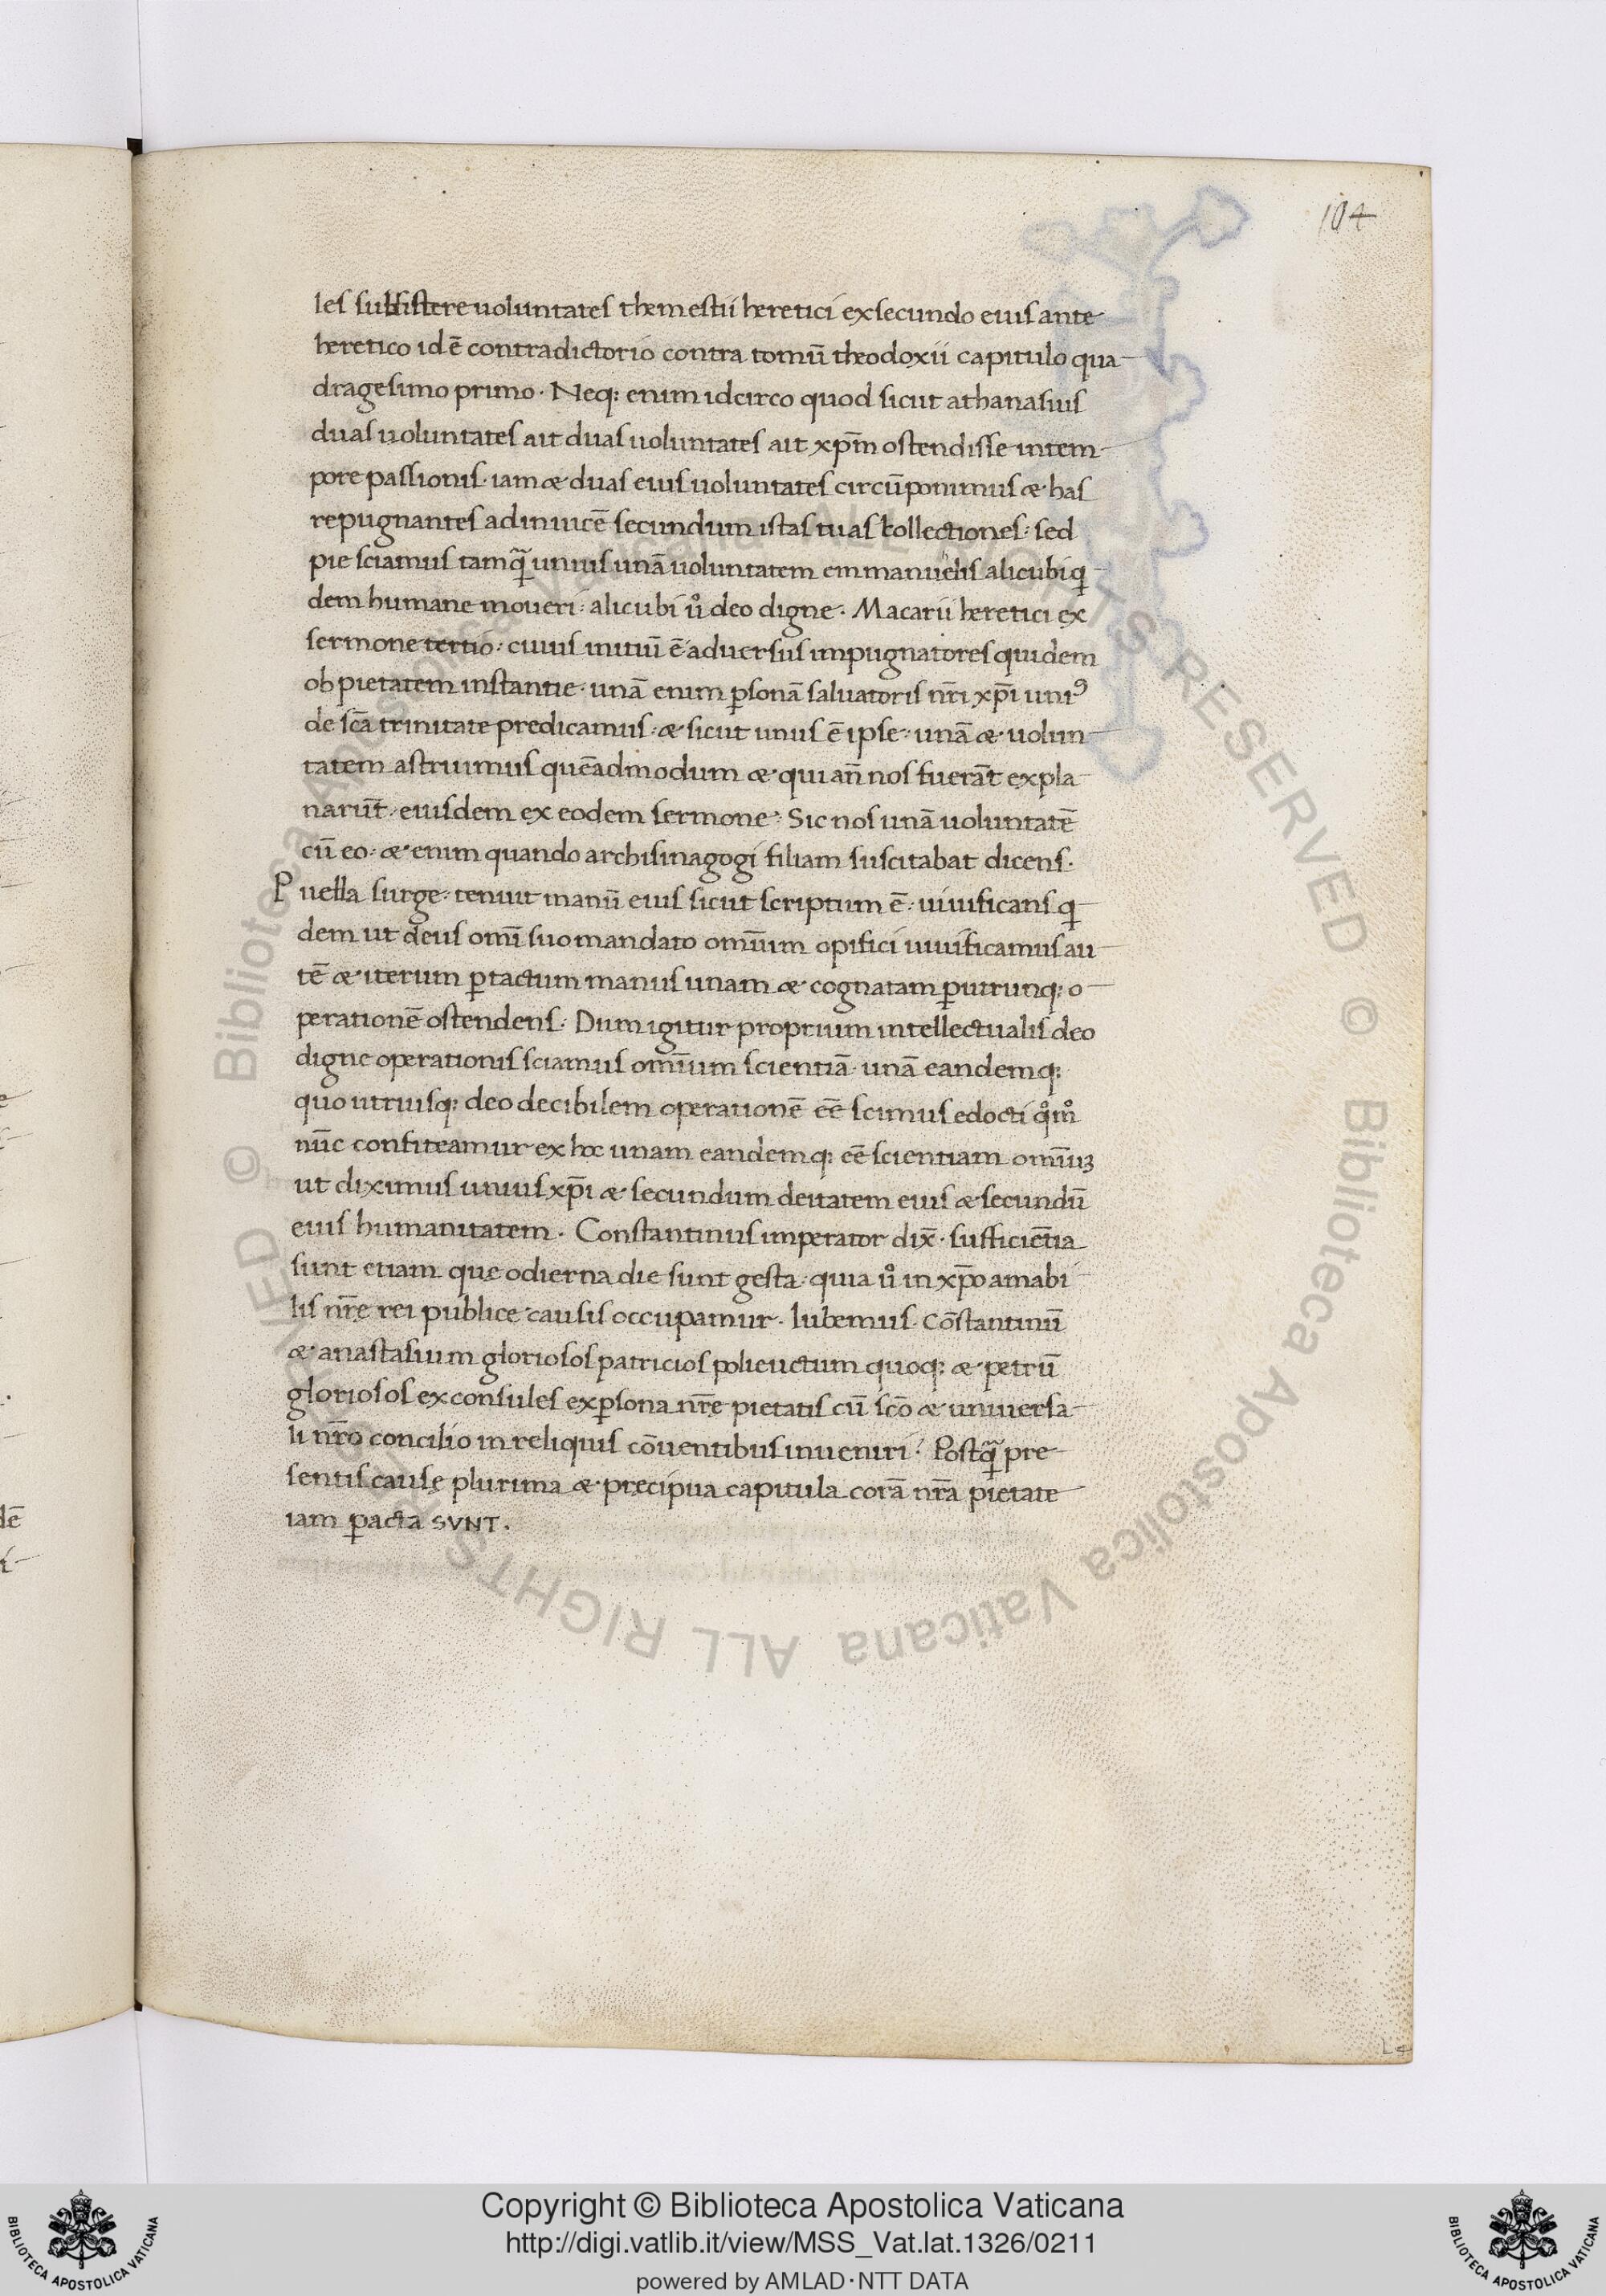 104
les subsistere uoluntates themestii heretici ex secundo eius ante
heretico idē contradictorio contra tomū theodoxii capitulo qua
dragesimo primo · Neq: enim idcirco quod sicut athanasius
duas uoluntates ait duas uoluntates ait xp̄m ostendisse in tem
pore passionis · iam & duas eius uoluntates circūponimus & has
repugnantes adinuicē secundum istas tuas collectiones · sed
pie sciamus tamq̄ unius unā uoluntatem emmanuelis alicubi q
dem humane moueri · alicubi u° deo digne · Macarii heretici ex
sermone tertio · cuius initiū ē aduersus impugnatores quidem
ob pietatem instantie · unā enim ꝑsonā saluatoris nr̄i xp̄i uniꝰ
de sc̄a trinitate predicamus · & sicut unus ē ipse · unā & uolun
tatem astruimus quēadmodum & qui an̄ nos fuerāt expla
narūt · eiusdem ex eodem sermone · Sic nos unā uoluntatē
cū eo · & enim quando archisinagogi filiam suscitabat dicens ·
Puella surge · tenuit manū eius sicut scriptum ē · uiuificans q
dem ut deus om̄i suo mandato om̄ium opifici uiuificamus au
tē & iterum ꝑ tactum manus unam & cognatam ꝑ utrunq: o
perationē ostendens · Dum igitur proprium intellectualis deo
digne operationis sciamus om̄ium scientiā unā eandemq:
quo utriusq: deo decibilem operationē eē scimus edocti q°m°
nūc confiteamur ex hoc unam eandemq: eē scientiam om̄iuꝫ
ut diximus unius xp̄i & secundum deitatem eius & secundū
eius humanitatem · Constantinus imperator dix̄ · sufficiētia
sunt etiam quę odierna die sunt gesta · quia u° in xp̄o amabi
lis nr̄ę rei publice causis occupamur · Iubemus · Cōstantinū
& anastasium gloriosos patricios polieuctum quoq: & petrū
gloriosos exconsules ex ꝑsona nr̄ę pietatis cū sc̄o & uniuersa
li nr̄o concilio in reliquis cōuentibus inueniri · Postq̄ pre
sentis causę plurima & pręcipua capitula corā nr̄a pietate
iam ꝑacta SVNT.
Copyright © Biblioteca Apostolica Vaticana
http://digi.vatlib.it/view/MSS_Vat.lat.1326/0211
powered by AMLAD·NTT DATA
BIBLIOTECA APOSTOLICA VATICANA
BIBLIOTECA APOSTOLICA VATICANA
© Biblioteca Apostolica Vaticana ALL RIGHTS RESERVED © Biblioteca Apostolica Vaticana ALL RIGHTS RESERVED